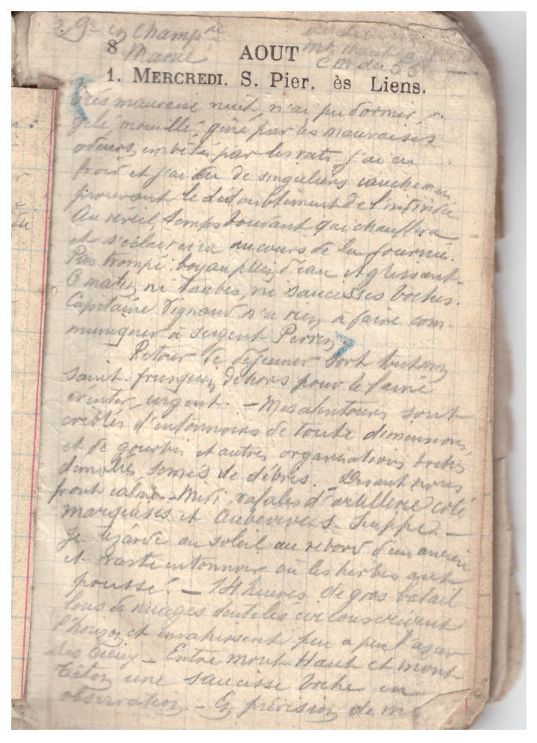 en Champ
Marne
8 AOUT
1. MERCREDI. S. Pier. ès Liens.
Très mauvaise nuit, n'ai pu dormir,
gelé, mouillé, gêné par les mauvaises
odeurs, embêté par les rats, j'ai eu
froid et j'ai eu de singuliers cauchemars
prouvant le dédoublement de l'
Au réveil temps couvant qui chauffera
et s'éclaircira au cours de la journée.
Pas trompé: boyau plein d'eau et glissant.
Ce matin ni taubes, ni saucisses boches.
Capitaine Vignaud n'a rien à faire com
muniquer à sergent Perrin
Retour le déjeuner
dehors pour le faire
urgent. - Mes alentours sont
criblés d'entonnoirs de toute dimensions,
et de gourbis et autres organisations boches
démolies, semés de débris. - Devant nous
front calme. Midi, rafales d'artillerie côté
marquises et Auberive s. Suippe. -
Je lézarde au soleil au rebord d'un ancien
et vaste entonnoir où les herbes ont
poussé. - 14 heures, de gros batail
lons de nuages dentelés circonscrivent
l'horizon et envahissent peu à peu l'azur
des cieux - Entre mont Haut et mont
Téton une saucisse boche en
observation. - En prévision de